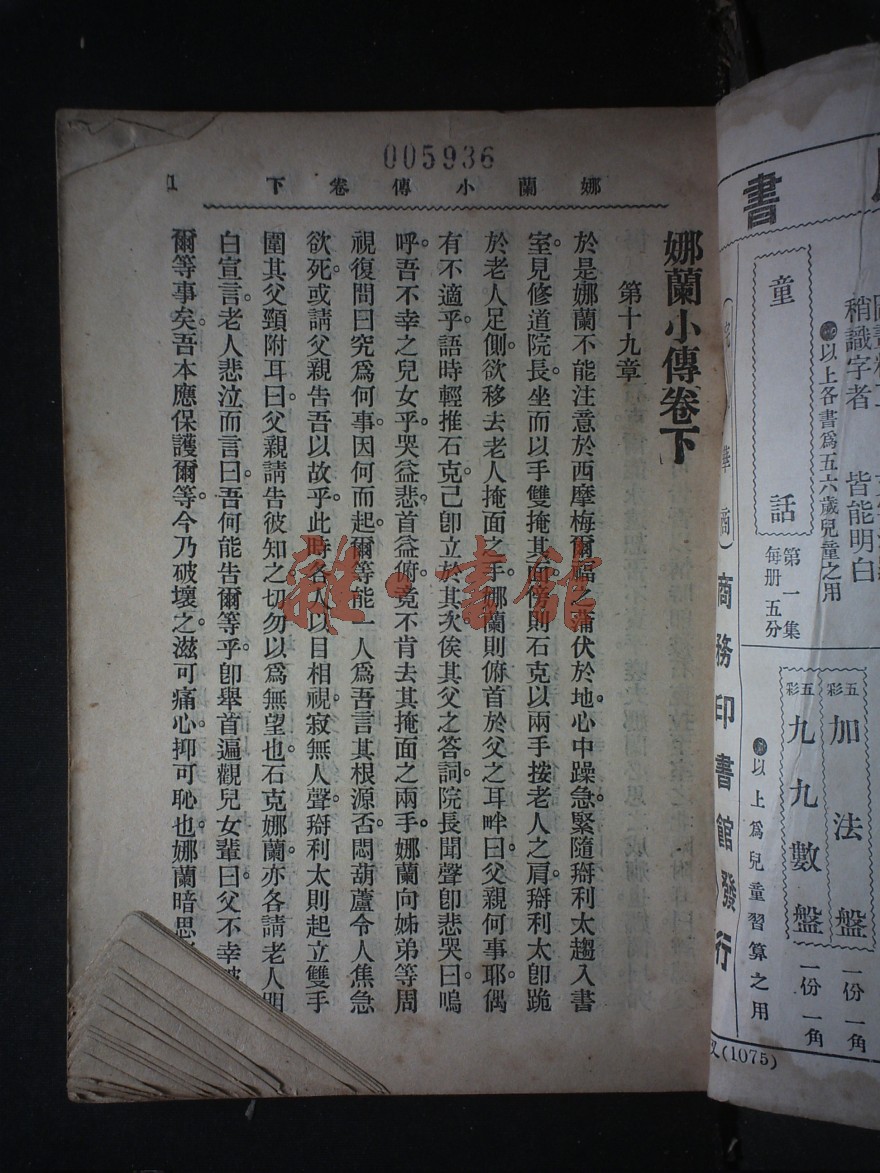 005936
娜蘭小傳卷下
1
娜蘭小傳卷下
第十九章
於是娜蘭不能注意於西摩梅爾福之蒲伏於地。心中躁急。緊隨搿利太趨入書
室。見修道院長。坐而以手雙掩其面。傍則石克以兩手摟老人之肩。搿利太卽跪
於老人足側。欲移去老人掩面之手。娜蘭則俯首於父之耳畔曰。父親何事耶。偶
有不適乎。語時輕推石克。己卽立於其次。俟其父之答詞。院長聞聲卽悲哭曰。嗚
呼。吾不幸之兒女乎。哭益悲。首益俯。竟不肯去其掩面之兩手。娜蘭向姊弟等周
視復問曰。究爲何事。因何而起。爾等能一人爲吾言其根源否。悶葫蘆令人焦急
欲死。或請父親告吾以故乎。此時各人以目相視。寂無人聲。搿利太則起立。雙手
圍其父頸附耳曰。父親請告彼知之。切勿以爲無望也。石克娜蘭。亦各請老人明
白宣言。老人悲泣而言曰。吾何能告爾等乎。卽舉首遍觀兒女輩曰。父不幸
爾等事矣。吾本應保護爾等。今乃破壞之。滋可痛心。抑可恥也。娜蘭暗思
雜·書館
書
童話
第一集
每册五分
稍識字者 皆能明白
以上各書爲五六歲兒童之用
商務印書館發行
五彩 加法盤 一份一角
五彩 九九數盤 一份一角
以上爲兒童習算之用
(1075)